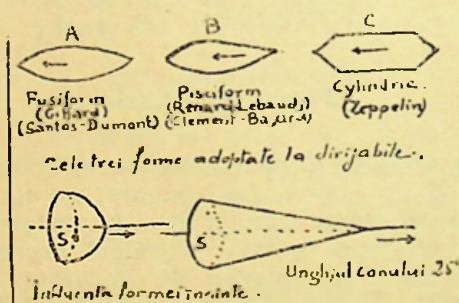 A B C
Fusiform
(Giffard)
(Santos-Dumont)
Pisciform
(Renard, Lebaudy)
(Clement-Bayard)
Cylindric.
(Zeppelin)
Cele trei forme adoptate la dirijabile.
S
S
Unghiul conului 25°
Influenta formei inainte.